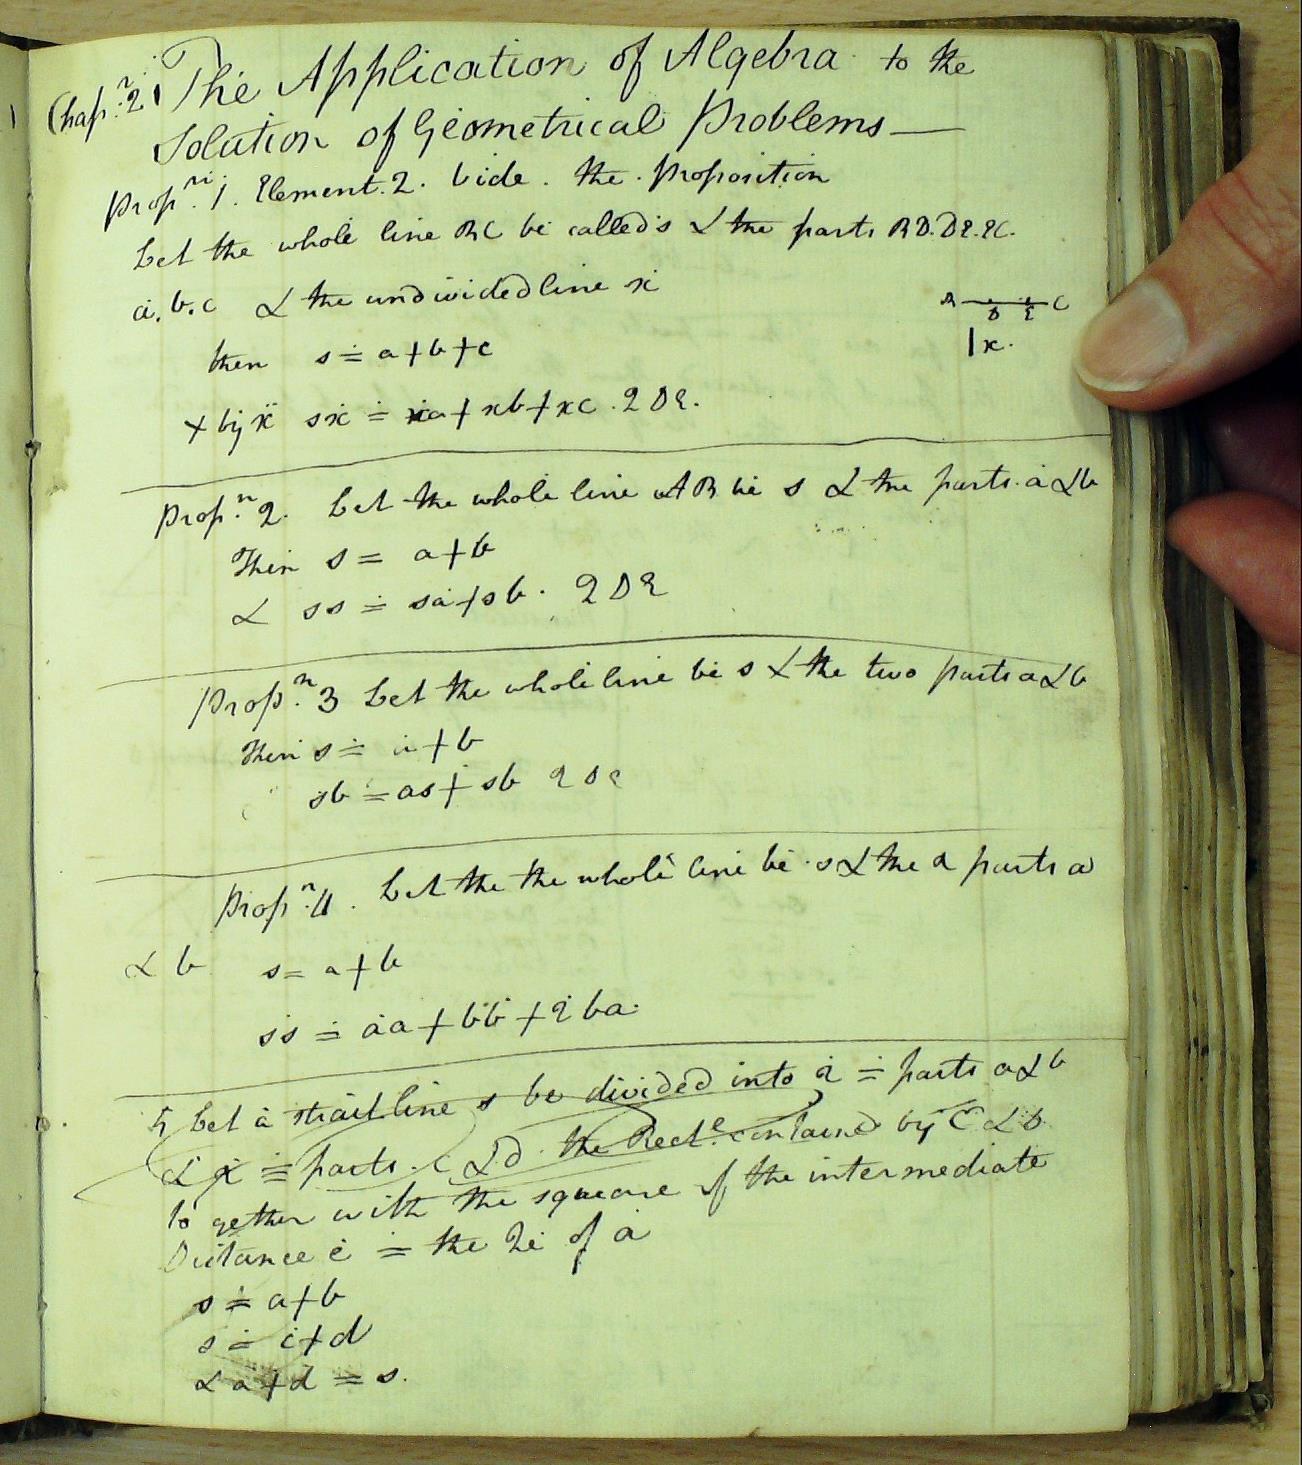 Chap.r 2. The Application of Algebra to the
Solution of Geometrical Problems—
Prop.n 1. Element. 2. Vide. the. Proposition
Let the whole line BC be called s & the parts BD. DE. EC.
a. b. c & the undivided line x
B C
D E
then s = a + b + c
x.
x by x sx = xa + xb + xc. QDE.
Prop.n 2. Let the whole line AB be s & the parts a & b
Then s = a + b
& ss = sa + sb. QDE
Prop.n 3 Let the whole line be s & the two parts a & b
Then s = a + b
sb = as + sb QDE
Prop.n 4. Let the the whole line be s & the 2 parts a
& b s = a + b
ss = aa + bb + 2ba.
5 Let a strait line s be divided into 2 = parts a & b
& 2 = parts. c & d. the Rect.e contained by C & D
together with the square of the intermediate
Distance e = the of a
s = a + b
s = c + d
& a + d = s.